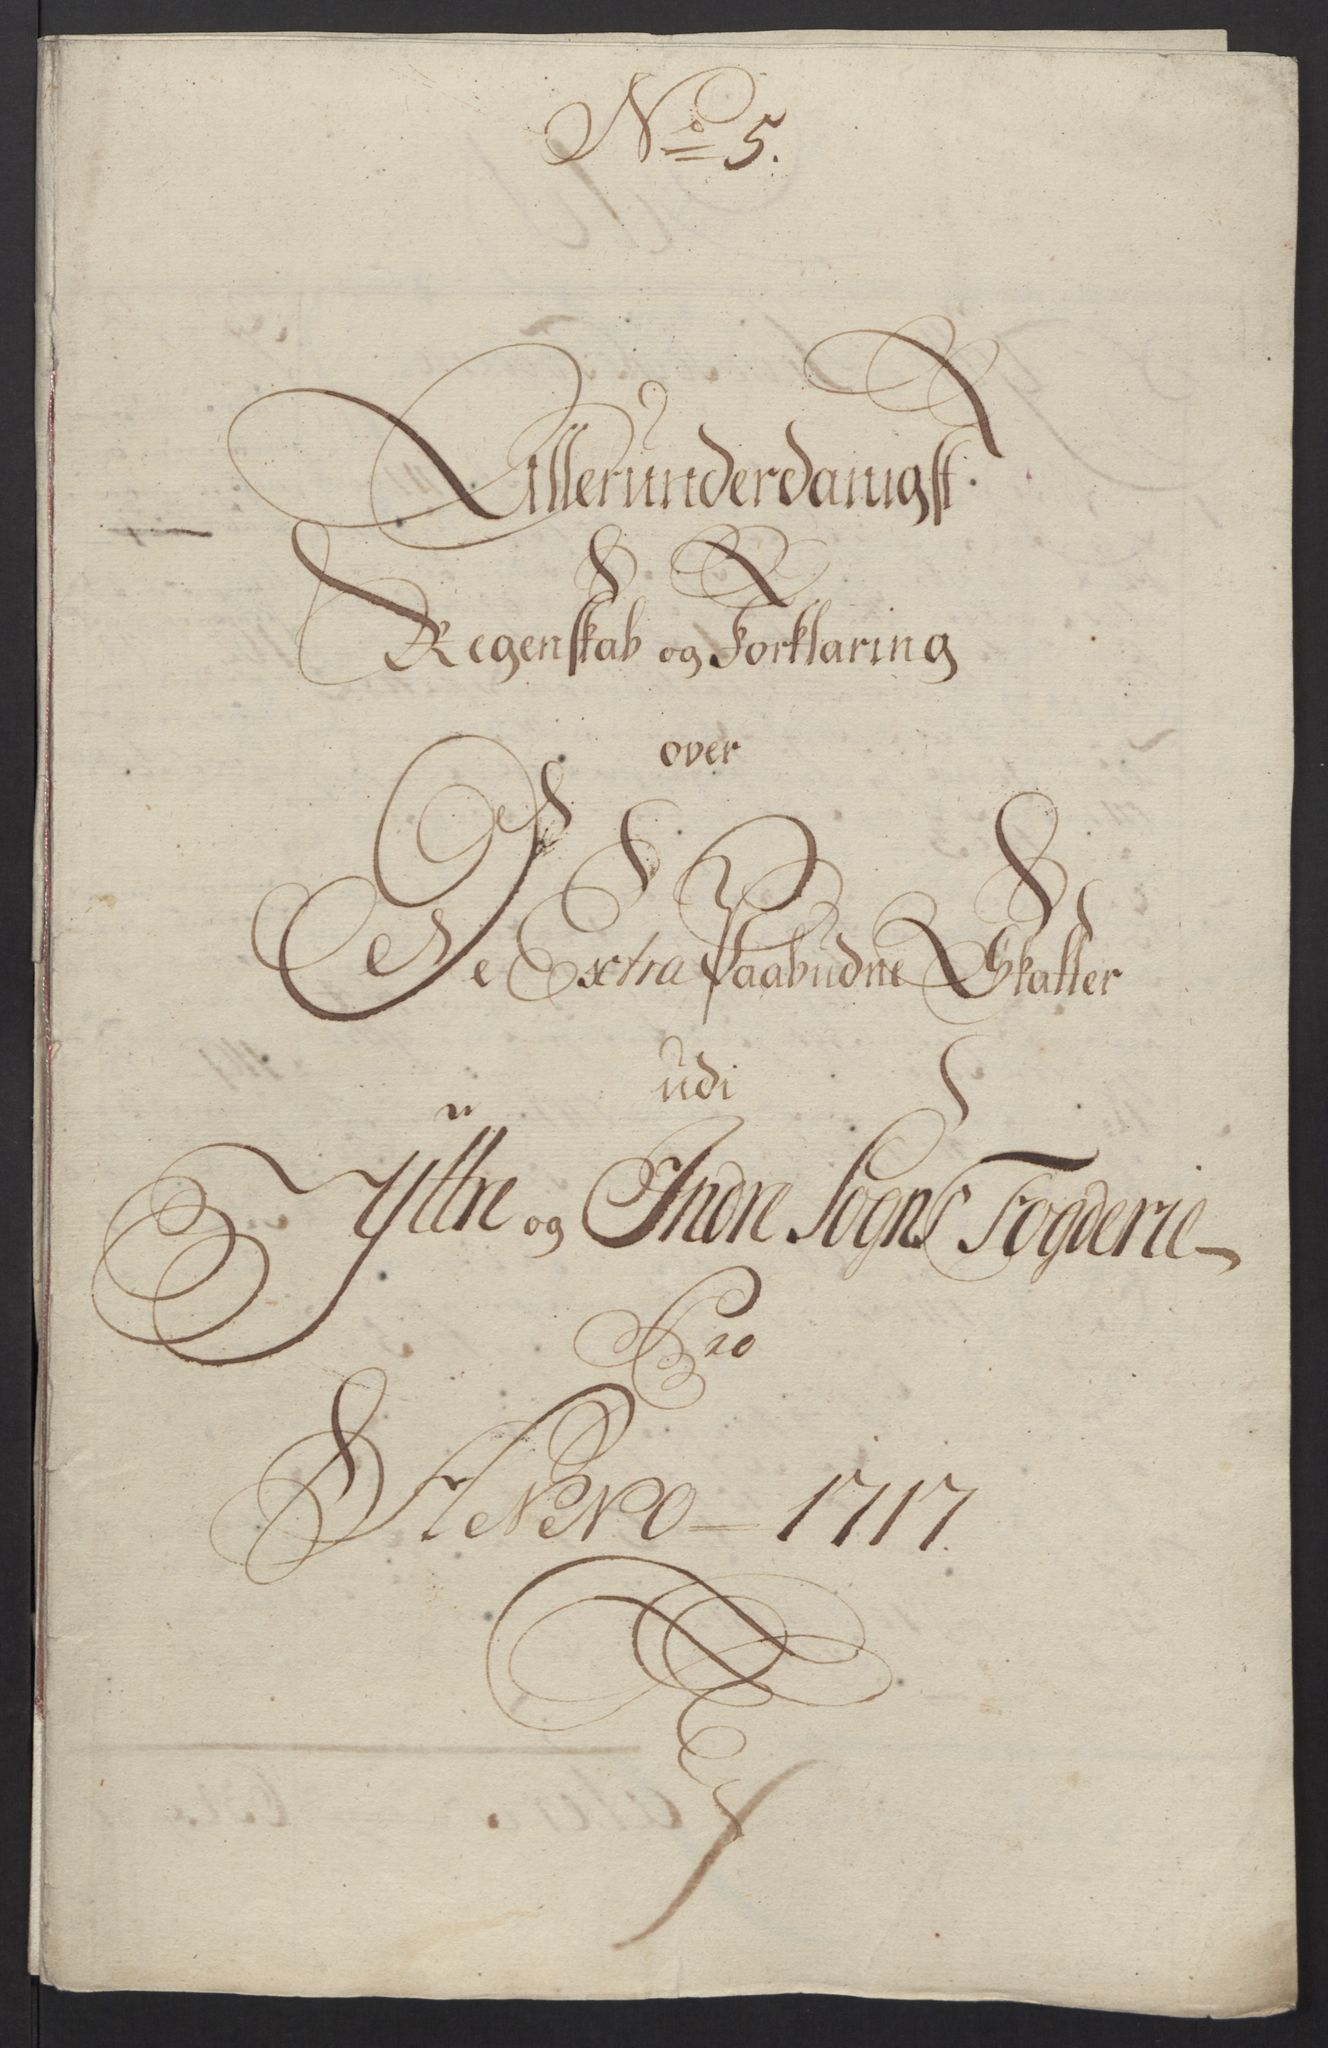 No 5.
Allerunderdanigst
Regenskab og Forklaring
over
De Extra Paabudne Skatter
udi
Ÿttre og Indre Sogns Fogderie
Pro
Anno 1717